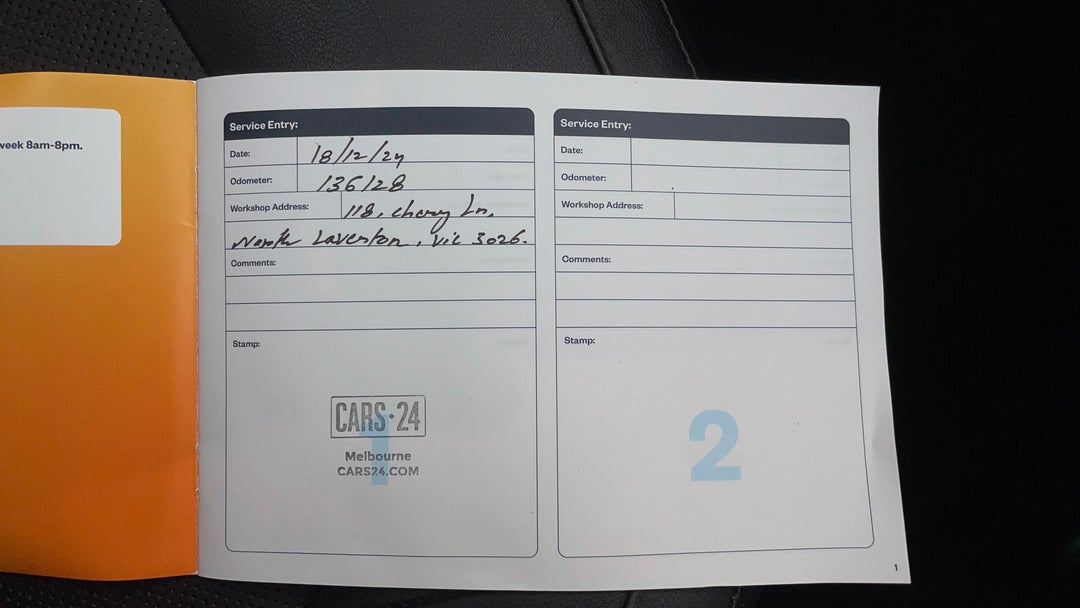 week 8am-8pm.
Service Entry:
Date: 18/12/24
Odometer: 136128
Workshop Address: 118, cherry Ln,
North Laverton, Vic 3026.
Comments:
Stamp:
CARS·24
Melbourne
CARS24.COM
1
Service Entry:
Date:
Odometer:
Workshop Address:
Comments:
Stamp:
2
1